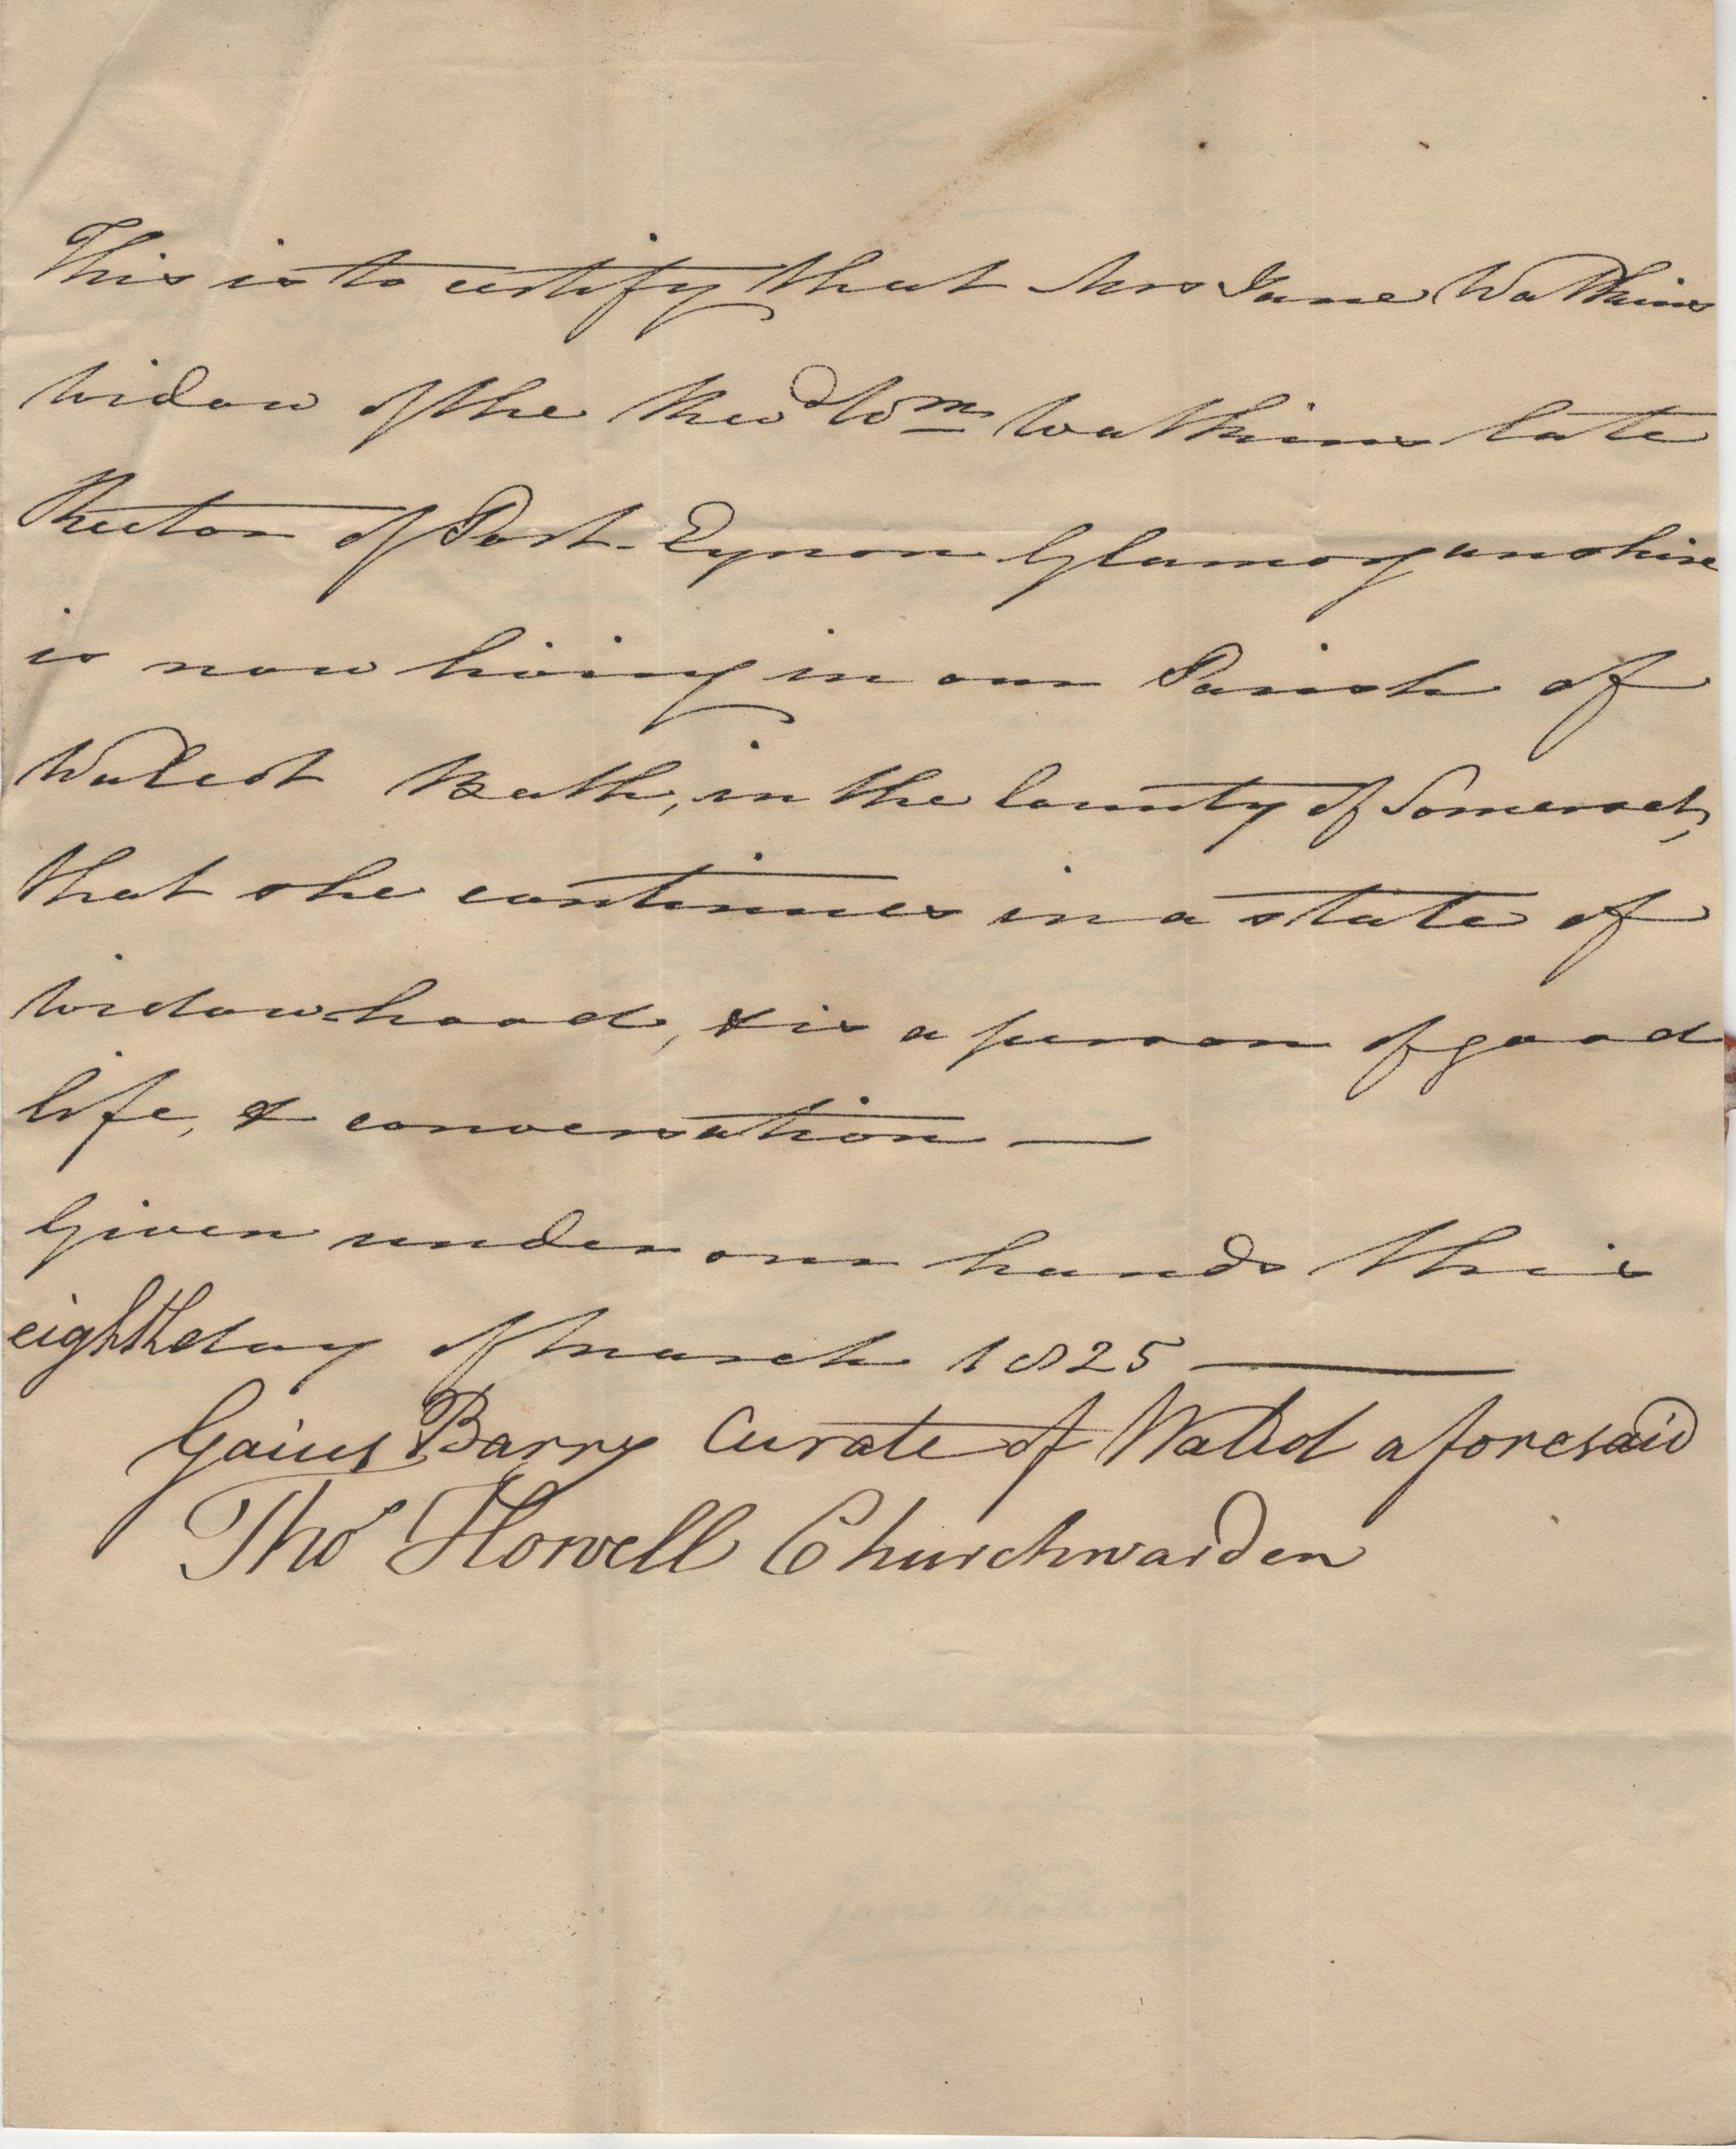 This is to certify that Mrs Jane Watkins
Widow of the Revd Wm Watkins late
Rector of Port-Eynon Glamorganshire
is now living in our Parish of
Walcot Bath, in the County of Somerset,
that she continues in a state of
widow-hood, & is a person of good
life, & conversation —
Given under our hands this
eighth day of March 1825 —
Gaius Barry Curate of Walcot aforesaid
Thos Howell Churchwarden